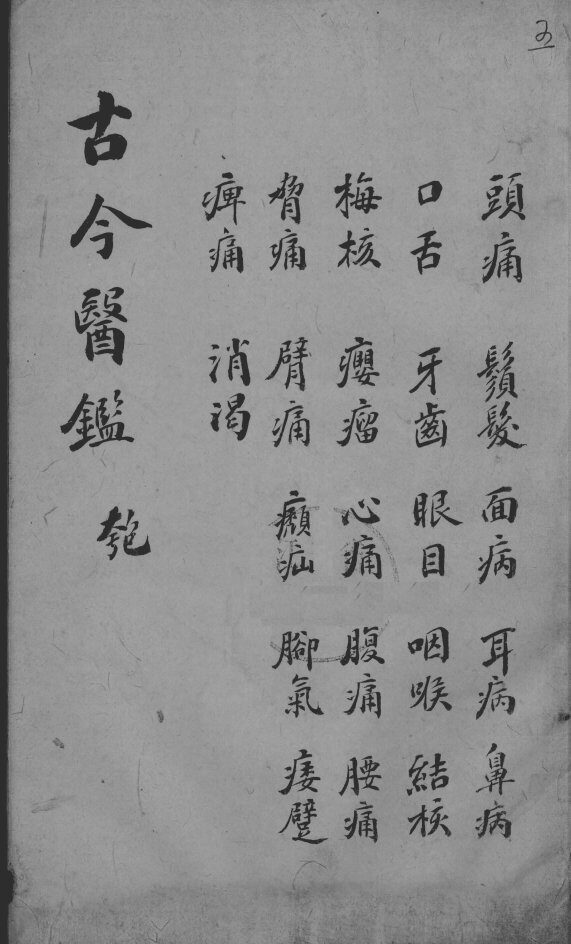 五
頭痛 鬚髮 面病 耳病 鼻病
口舌 牙齒 眼目 咽喉 結核
梅核 癭瘤 心痛 腹痛 腰痛
脅痛 臂痛 㿗疝 腳氣 痿躄
痺痛 消渴
古今醫鑑 匏